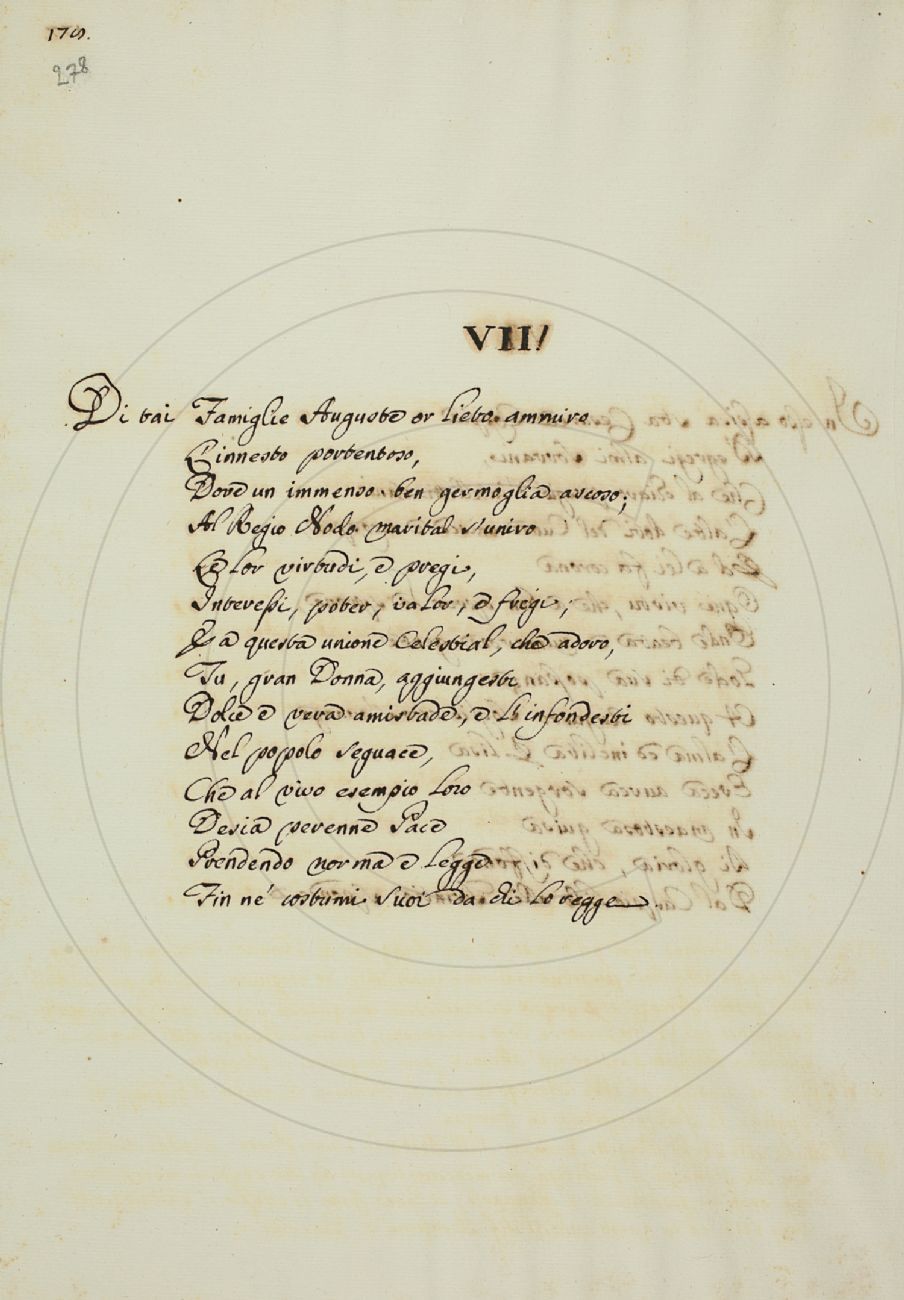 178.
278
VII.
Di tai Famiglie Auguste or lieto ammiro
L'innesto portentoso,
Dove un immenso ben germoglia ascoso;
Al Regio Nodo marital s'uniro
Le lor virtudi, e pregi,
Interessi, poter, valor, e fregi;
E a questa unione Celestial, che adoro,
Tu, gran Donna, aggiungesti
Dolce e vera amistade, e l'infondesti
Nel popolo seguace,
Che al vivo esempio loro
Desia perenne Pace
Prendendo norma e legge
Fin ne' costumi suoi da chi lo regge.